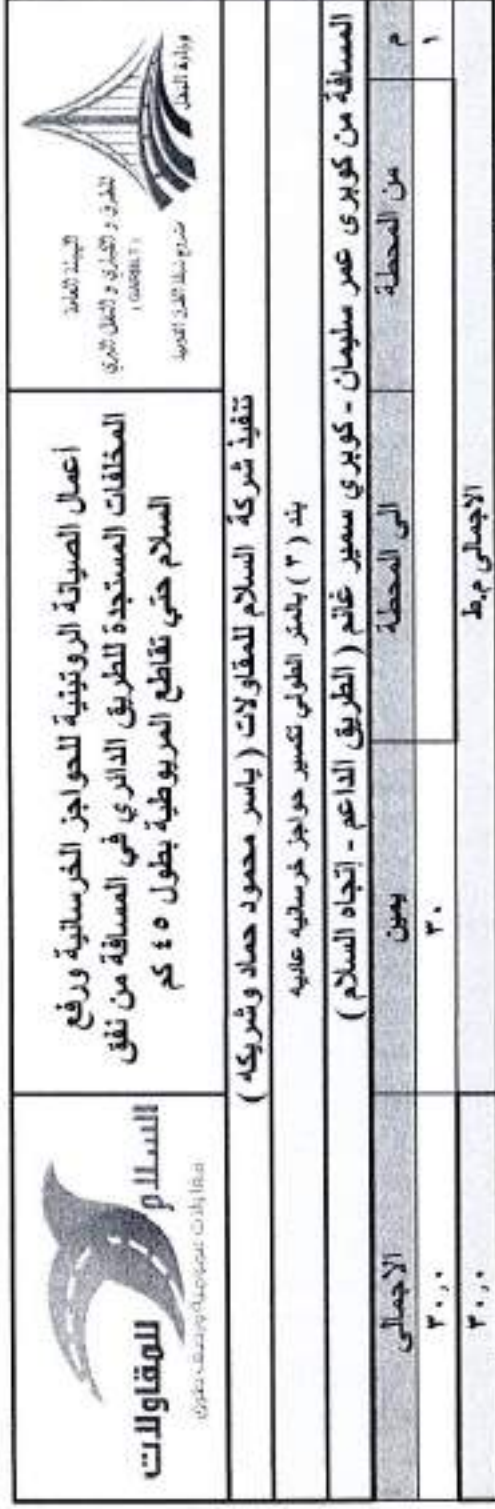 وزارة النقل
الهيئة العامة
للطرق و الكباري و النقل البري
( GARBLT )
أعمال الصيانة الروتينية للحواجز الخرسانية ورفع
المخلفات المستجدة للطريق الدائري في المسافة من نفق
السلام حتي تقاطع المريوطية بطول ٤٥ كم
السلام
للمقاولات
تنفيذ شركة السلام للمقاولات ( ياسر محمود حماد وشريكه )
بند ( ٣ ) بالمتر الطولي تكسير حواجز خرسانيه عاديه
المسافة من كوبرى عمر سليمان - كوبري سمير غانم ( الطريق الداعم - إتجاه السلام )
م من المحطة الى المحطة يمين الاجمالى
١ ٣٠ ٣٠,٠
الاجمالى م.ط ٣٠,٠